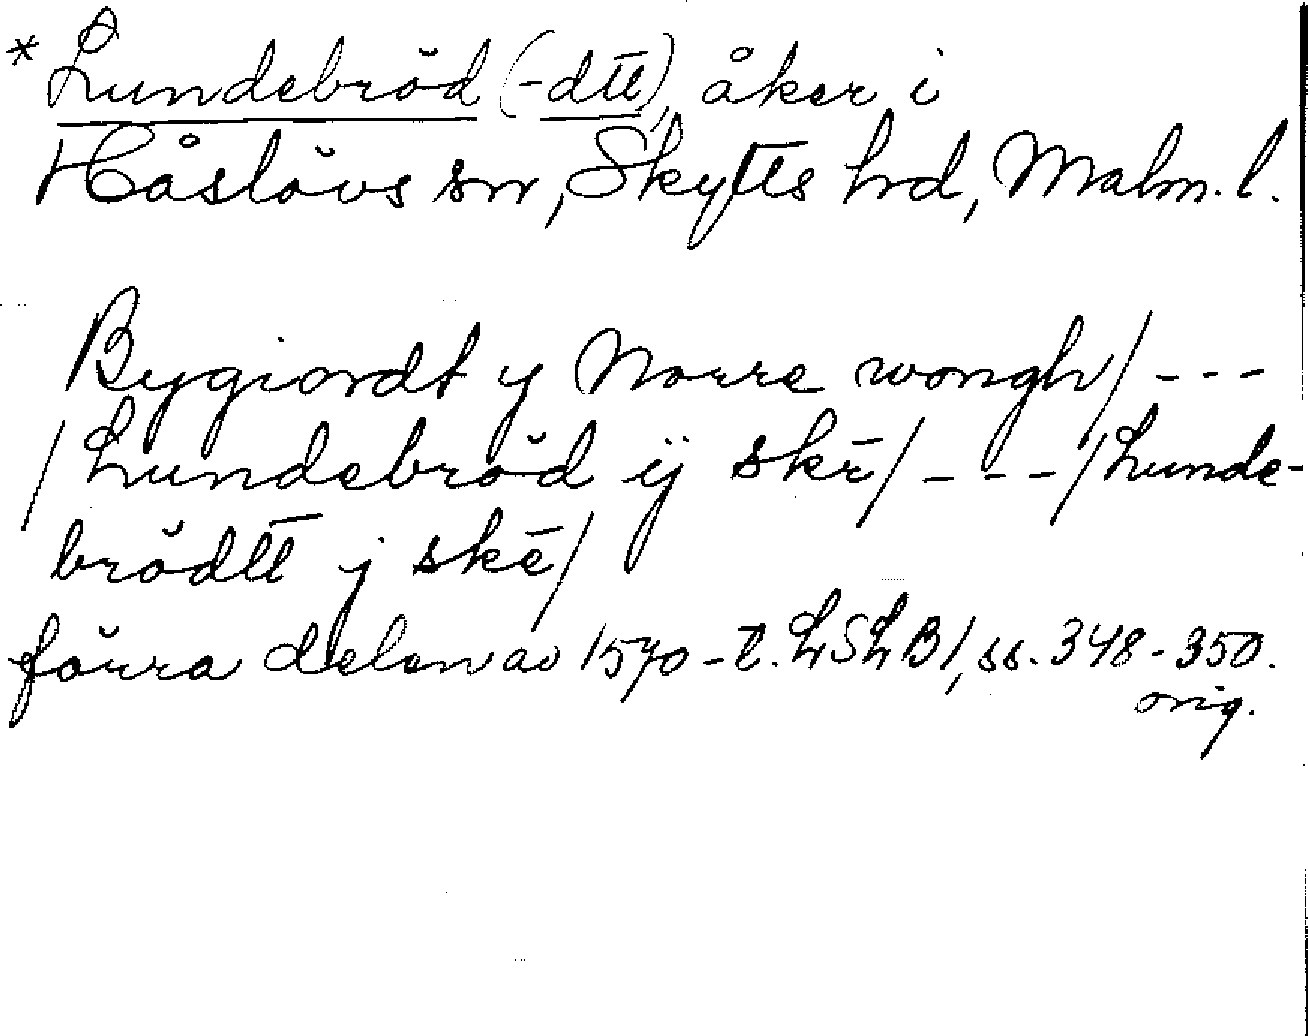 *Lundebröd (-dtt), åker i
Håslövs sn, Skytts hd, Malm. l.
Bygiordt y Norre wongh/ ---
/Lundebröd ij skē/ --- /Lunde-
brödtt j skē/
förra delen av 1570-t. LSLB1, ss. 348-350.
orig.